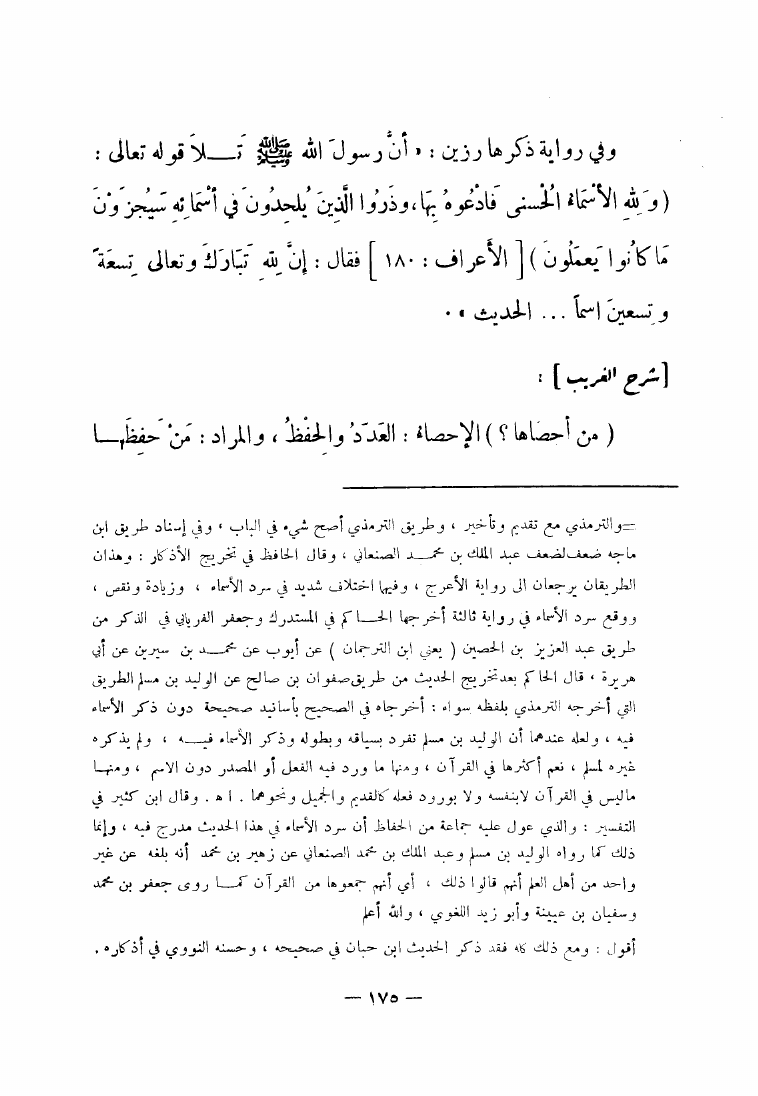 وفي رواية ذكرها رزين : « أنَّ رسولَ الله ﷺ تَـــلاَ قوله تعالى :
( وَلله الأسْمَاءُ الْحُسنى فَادْعُوهُ بِهَا، وذَرُوا الَّذِينَ يُلحِدُونَ في أسْمَائِهِ سَيُجزَوْنَ
مَا كَانُوا يَعمَلُونَ ) [ الأعراف : ١٨٠ ] فقال : إنَّ لِلهِ تَبَارَكَ وتعالى تِسعَةً
وتِسعينَ اسماً ... الحديث » .
[شرح الغريب] :
( من أحصَاها ؟ ) الإحصاءُ : العَدَدُ والحِفْظُ ، والمراد : مَنْ حفِظَهــا
=والترمذي مع تقديم وتأخير ، وطريق الترمذي أصح شيء في الباب ، وفي إسناد طريق ابن
ماجه ضعف لضعف عبد الملك بن محمــد الصنعاني ، وقال الحافظ في تخريج الأذكار : وهذان
الطريقان يرجعان الى رواية الأعرج ، وفيها اختلاف شديد في سرد الأسماء ، وزيادة ونقص ،
ووقع سرد الأسماء في رواية ثالثة أخرجها الحــاكم في المستدرك وجعفر الفريابي في الذكر من
طريق عبد العزيز بن الحصين ( يعني ابن الترجمان ) عن أيوب عن محمــد بن سيرين عن أبي
هريرة ، قال الحاكم بعد تخريج الحديث من طريق صفوان بن صالح عن الوليد بن مسلم الطريق
التي أخرجه الترمذي بلفظه سواء : أخرجاه في الصحيح بأسانيد صحيحة دون ذكر الأسماء
فيه ، ولعله عندهما أن الوليد بن مسلم تفرد بسياقه وبطوله وذكر الأسماء فيــه ، ولم يذكره
غيره لمسلم ، نعم أكثرها في القرآن ، ومنها ما ورد فيه الفعل أو المصدر دون الاسم ، ومنهـا
ماليس في القرآن لابنفسه ولا بورود فعله كالقديم والجميل ونحوهما . ا ه . وقال ابن كثير في
التفسير : والذي عول عليه جماعة من الحفاظ أن سرد الأسماء في هذا الحديث مدرج فيه ، وإنما
ذلك كما رواه الوليد بن مسلم وعبد الملك بن محمد الصنعاني عن زهير بن محمد أنه بلغه عن غير
واحد من أهل العلم أنهم قالوا ذلك ، أي أنهم جمعوها من القرآن كمــا روى جعفر بن محمد
وسفيان بن عيينة وأبو زيد اللغوي ، والله أعلم
أقول : ومع ذلك كله فقد ذكر الحديث ابن حبان في صحيحه ، وحسنه النووي في أذكاره .
— ١٧٥ —